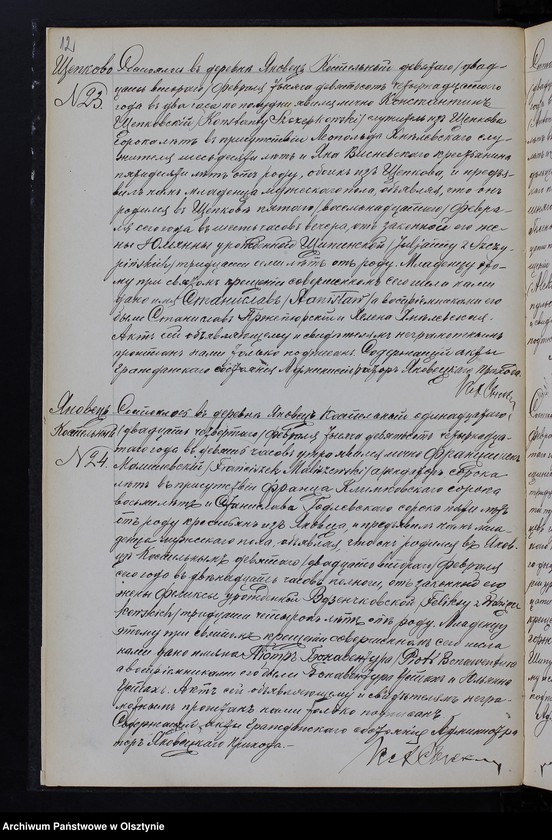 12
Щепково
№ 23.
Состоялось въ деревнѣ Яновецъ Костельный девятаго /двад-
цать втораго/ февраля тысяча девятьсотъ четырнадцатаго
года въ два часа по полудни. явился лично Константинъ
Щепковскій /Konstanty Szczepkowski/ служитель изъ Щепкова
сорока лѣтъ въ присутствіи слу-
жителя шестидесяти лѣтъ и Яна Висневскаго крестьянина
пятидесяти лѣтъ отъ роду, обоихъ изъ Щепкова, и предъя-
вилъ намъ младенца мужескаго пола, объявляя, что онъ
родился въ Щепковѣ пятаго /восемнадцатаго/ февра-
ля сего года въ часовъ вечера, отъ законной его же-
ны Юліанны урожденной отъ роду. Младенцу это-
му при святомъ крещеніи совершенномъ сего числа нами
дано имя Станиславъ /Stanisław/ а воспріемниками его
были Станиславъ и
Актъ сей объявляющему и свидѣтелямъ неграмотнымъ
прочитанъ нами только подписанъ Содержащій акты
гражданскаго состоянія Администраторъ Яновецкаго прихода.
Яновецъ
Костельный
№ 24.
Состоялось въ деревнѣ Яновецъ Костельный одинадцатаго
/двадцать четвертаго/ февраля тысяча девятьсотъ четырнадца-
таго года въ девять часовъ утра явился лично Францишекъ
Малишевскій /Franciszek Maliszewski/ арендаторъ
лѣтъ въ присутствіи Франца Климковскаго сорока
восьми лѣтъ и Станислава Годлевскаго сорока пяти лѣтъ
отъ роду крестьянъ изъ Яновца, и предъявилъ намъ мла-
денца мужескаго пола, объявляя, что онъ родился въ Янов-
цѣ Костельномъ девятаго /двадцать втораго/ февраля
сего года въ двѣнадцать часовъ полночи, отъ законной его
жены Феликсы урожденной Вдзенчковской /Feliksy z
тридцати четырехъ лѣтъ отъ роду. Младенцу
этому при святомъ крещеніи совершенномъ сего числа
нами дано имена Піотръ Бонавентура /Piotr Bonawentura
а воспріемниками его были Бонавентура и Юліанна
Актъ сей объявляющему и свидѣтелямъ негра-
мотнымъ прочитанъ нами только подписанъ
Содержащій акты гражданскаго состоянія Администра-
торъ Яновецкаго прихода.
Archiwum Państwowe w Olsztynie